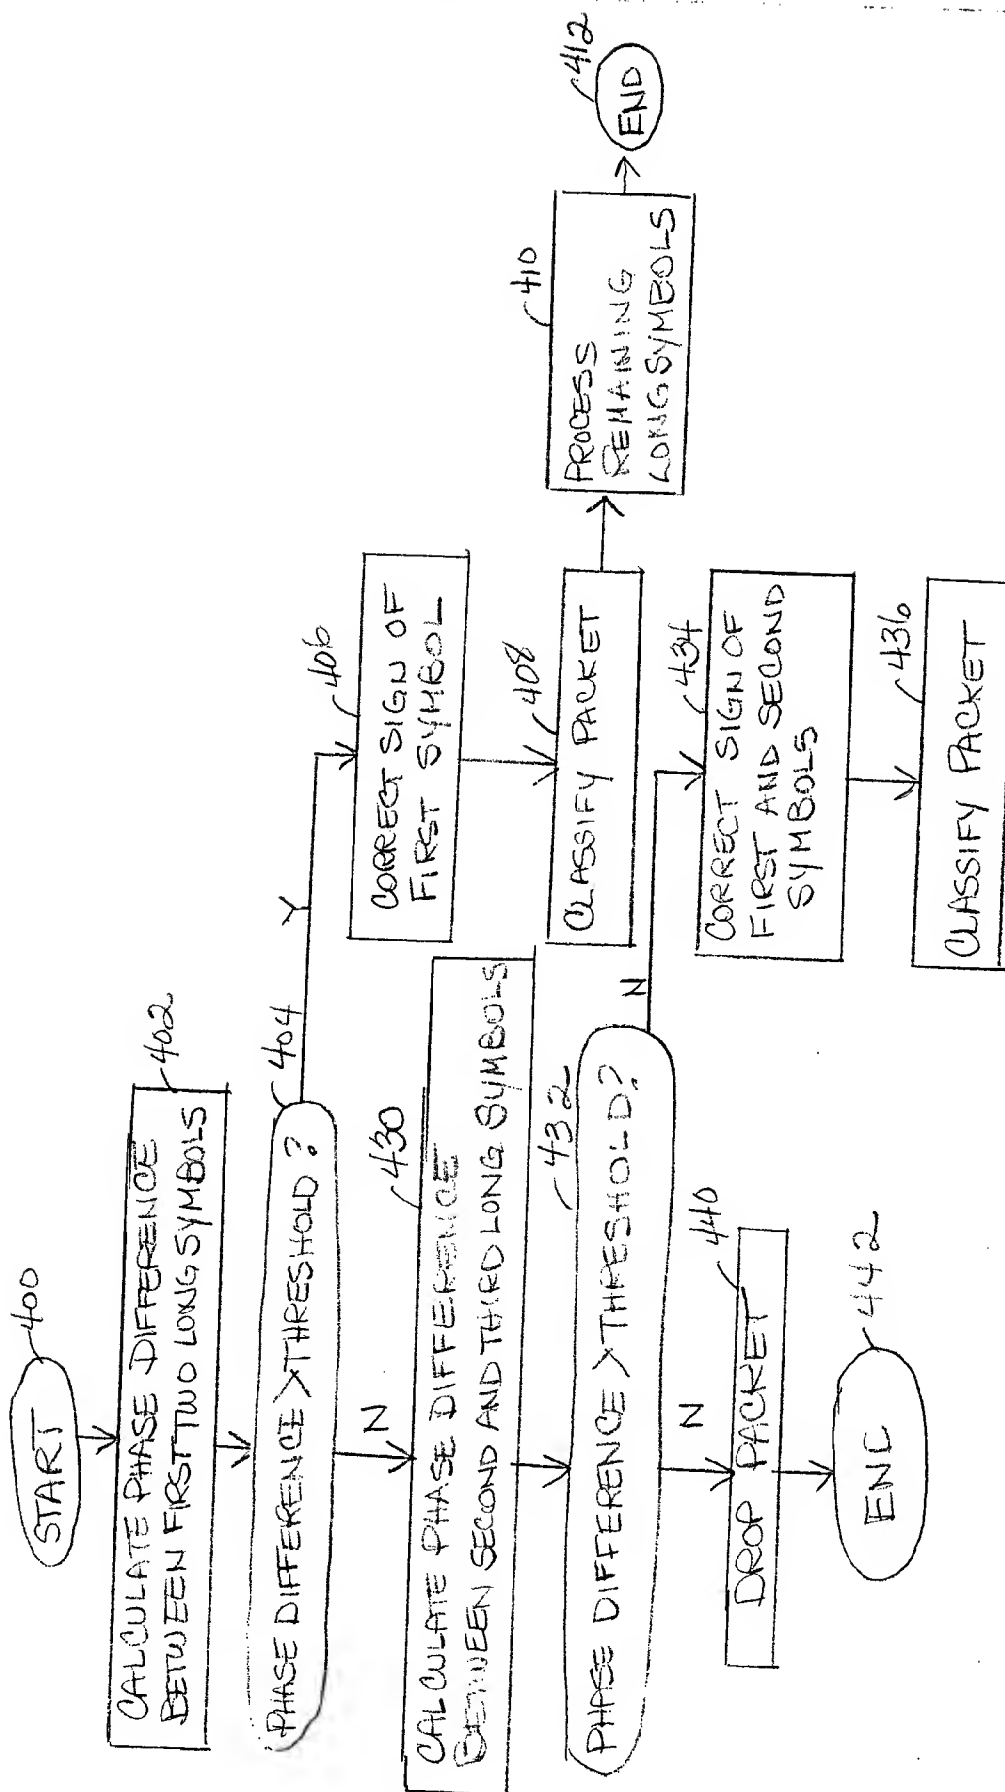 START
400
CALCULATE PHASE DIFFERENCE
BETWEEN FIRST TWO LONG SYMBOLS
402
PHASE DIFFERENCE > THRESHOLD?
404
Y
N
CORRECT SIGN OF
FIRST SYMBOL
406
CLASSIFY PACKET
408
PROCESS
REMAINING
LONG SYMBOLS
410
END
412
CALCULATE PHASE DIFFERENCE
BETWEEN SECOND AND THIRD LONG SYMBOLS
430
PHASE DIFFERENCE > THRESHOLD?
432
N
N
CORRECT SIGN OF
FIRST AND SECOND
SYMBOLS
434
CLASSIFY PACKET
436
DROP PACKET
440
END
442